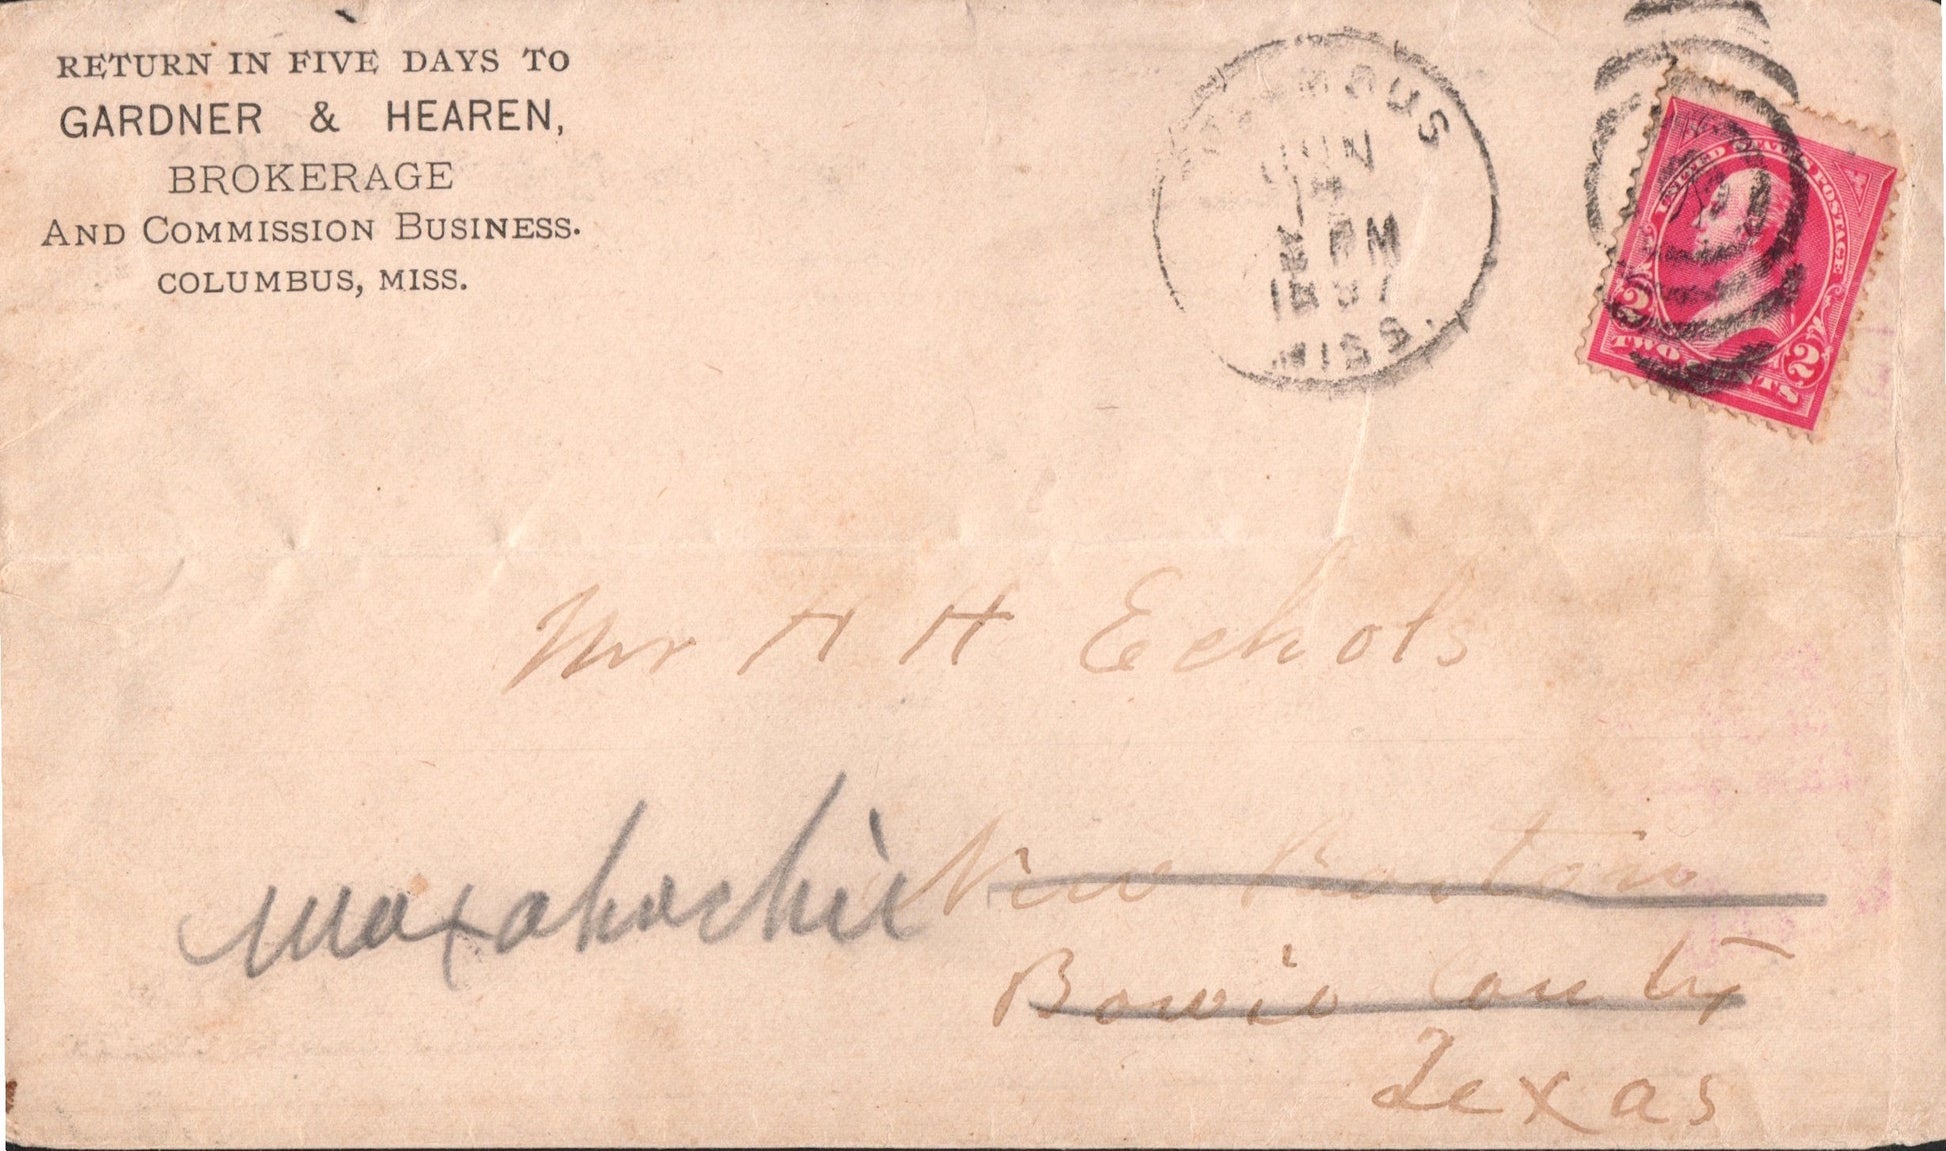 RETURN IN FIVE DAYS TO
GARDNER & HEAREN,
BROKERAGE
AND COMMISSION BUSINESS.
COLUMBUS, MISS.
COLUMBUS
JUN
PM
1897
MISS.
UNITED STATES POSTAGE
2 2
TWO CENTS
Mr H H Echols
Waxahachie
New Boston
Bowie County
Texas